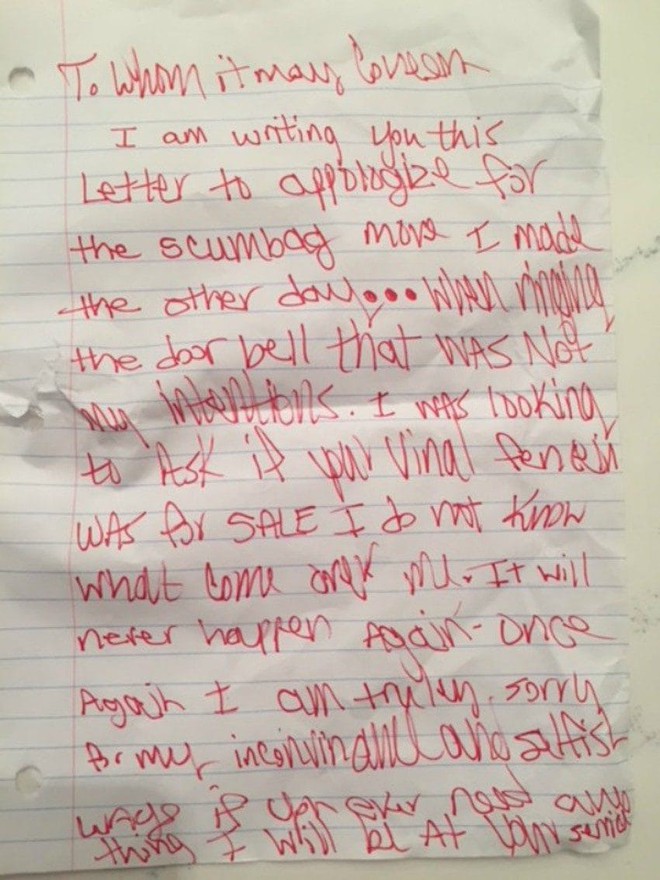 To Whom it may Concern
I am writing you this
Letter to appologize for
the scumbag move I made
the other day... when ringing
the door bell that WAS Not
my intentions. I was looking
to Ask if your Vinal fencin
WAS for SALE I do not know
what come over me. It will
never happen Again - Once
Again I am truley sorry
for my and selfish
ways if you ever need any
thing I will be At your service